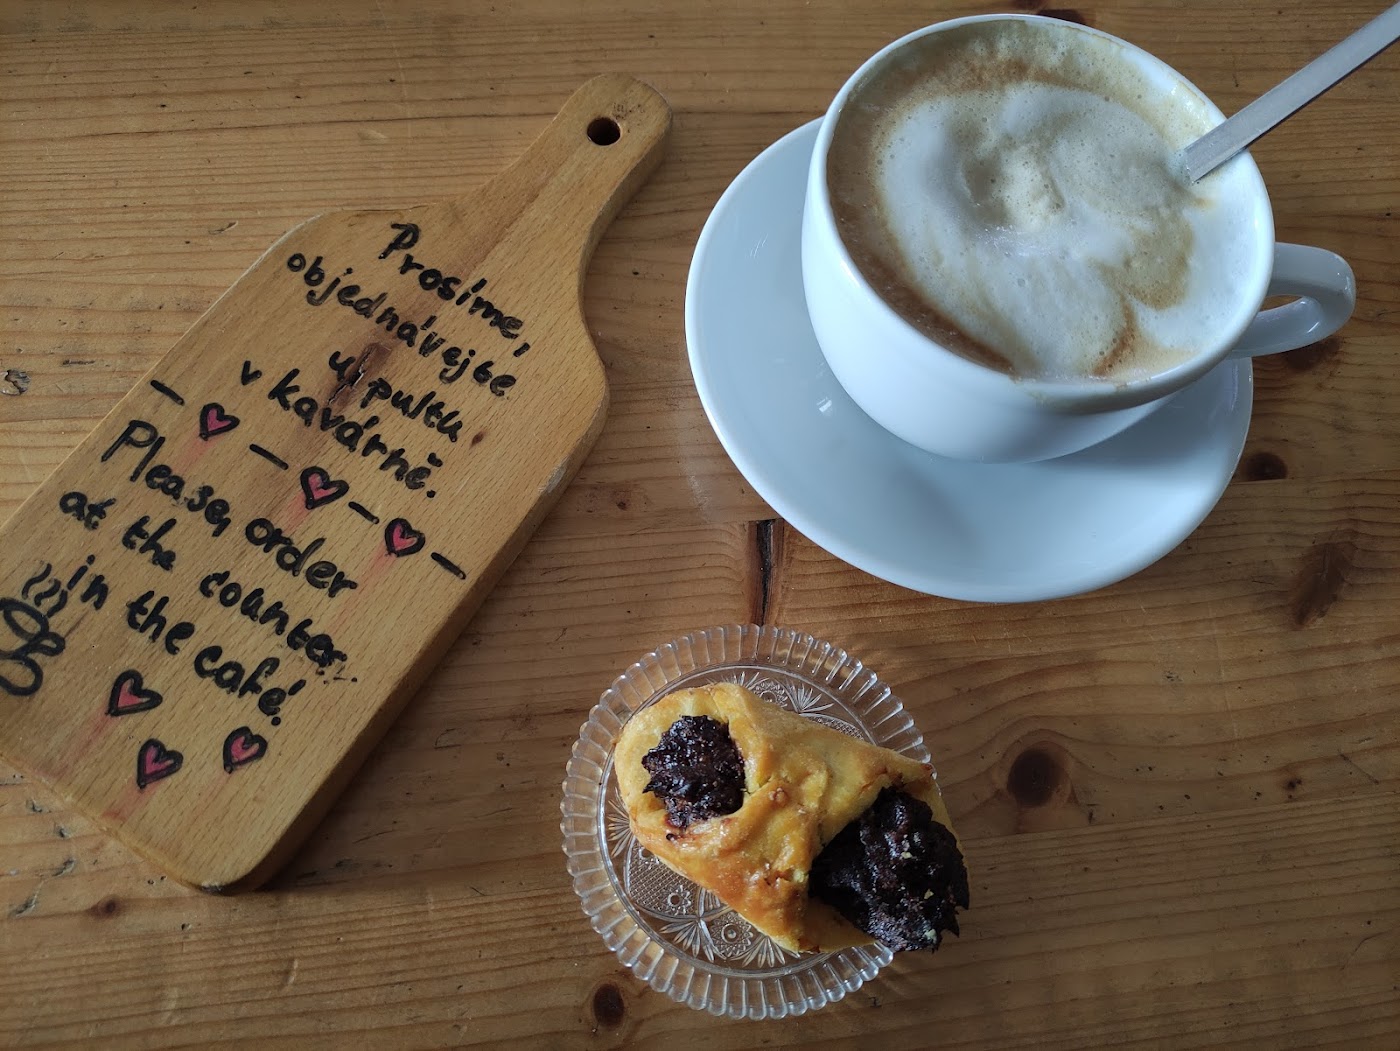 Prosíme,
objednávejte
u pultu
v kavárně.
Please, order
at the counter
in the café.